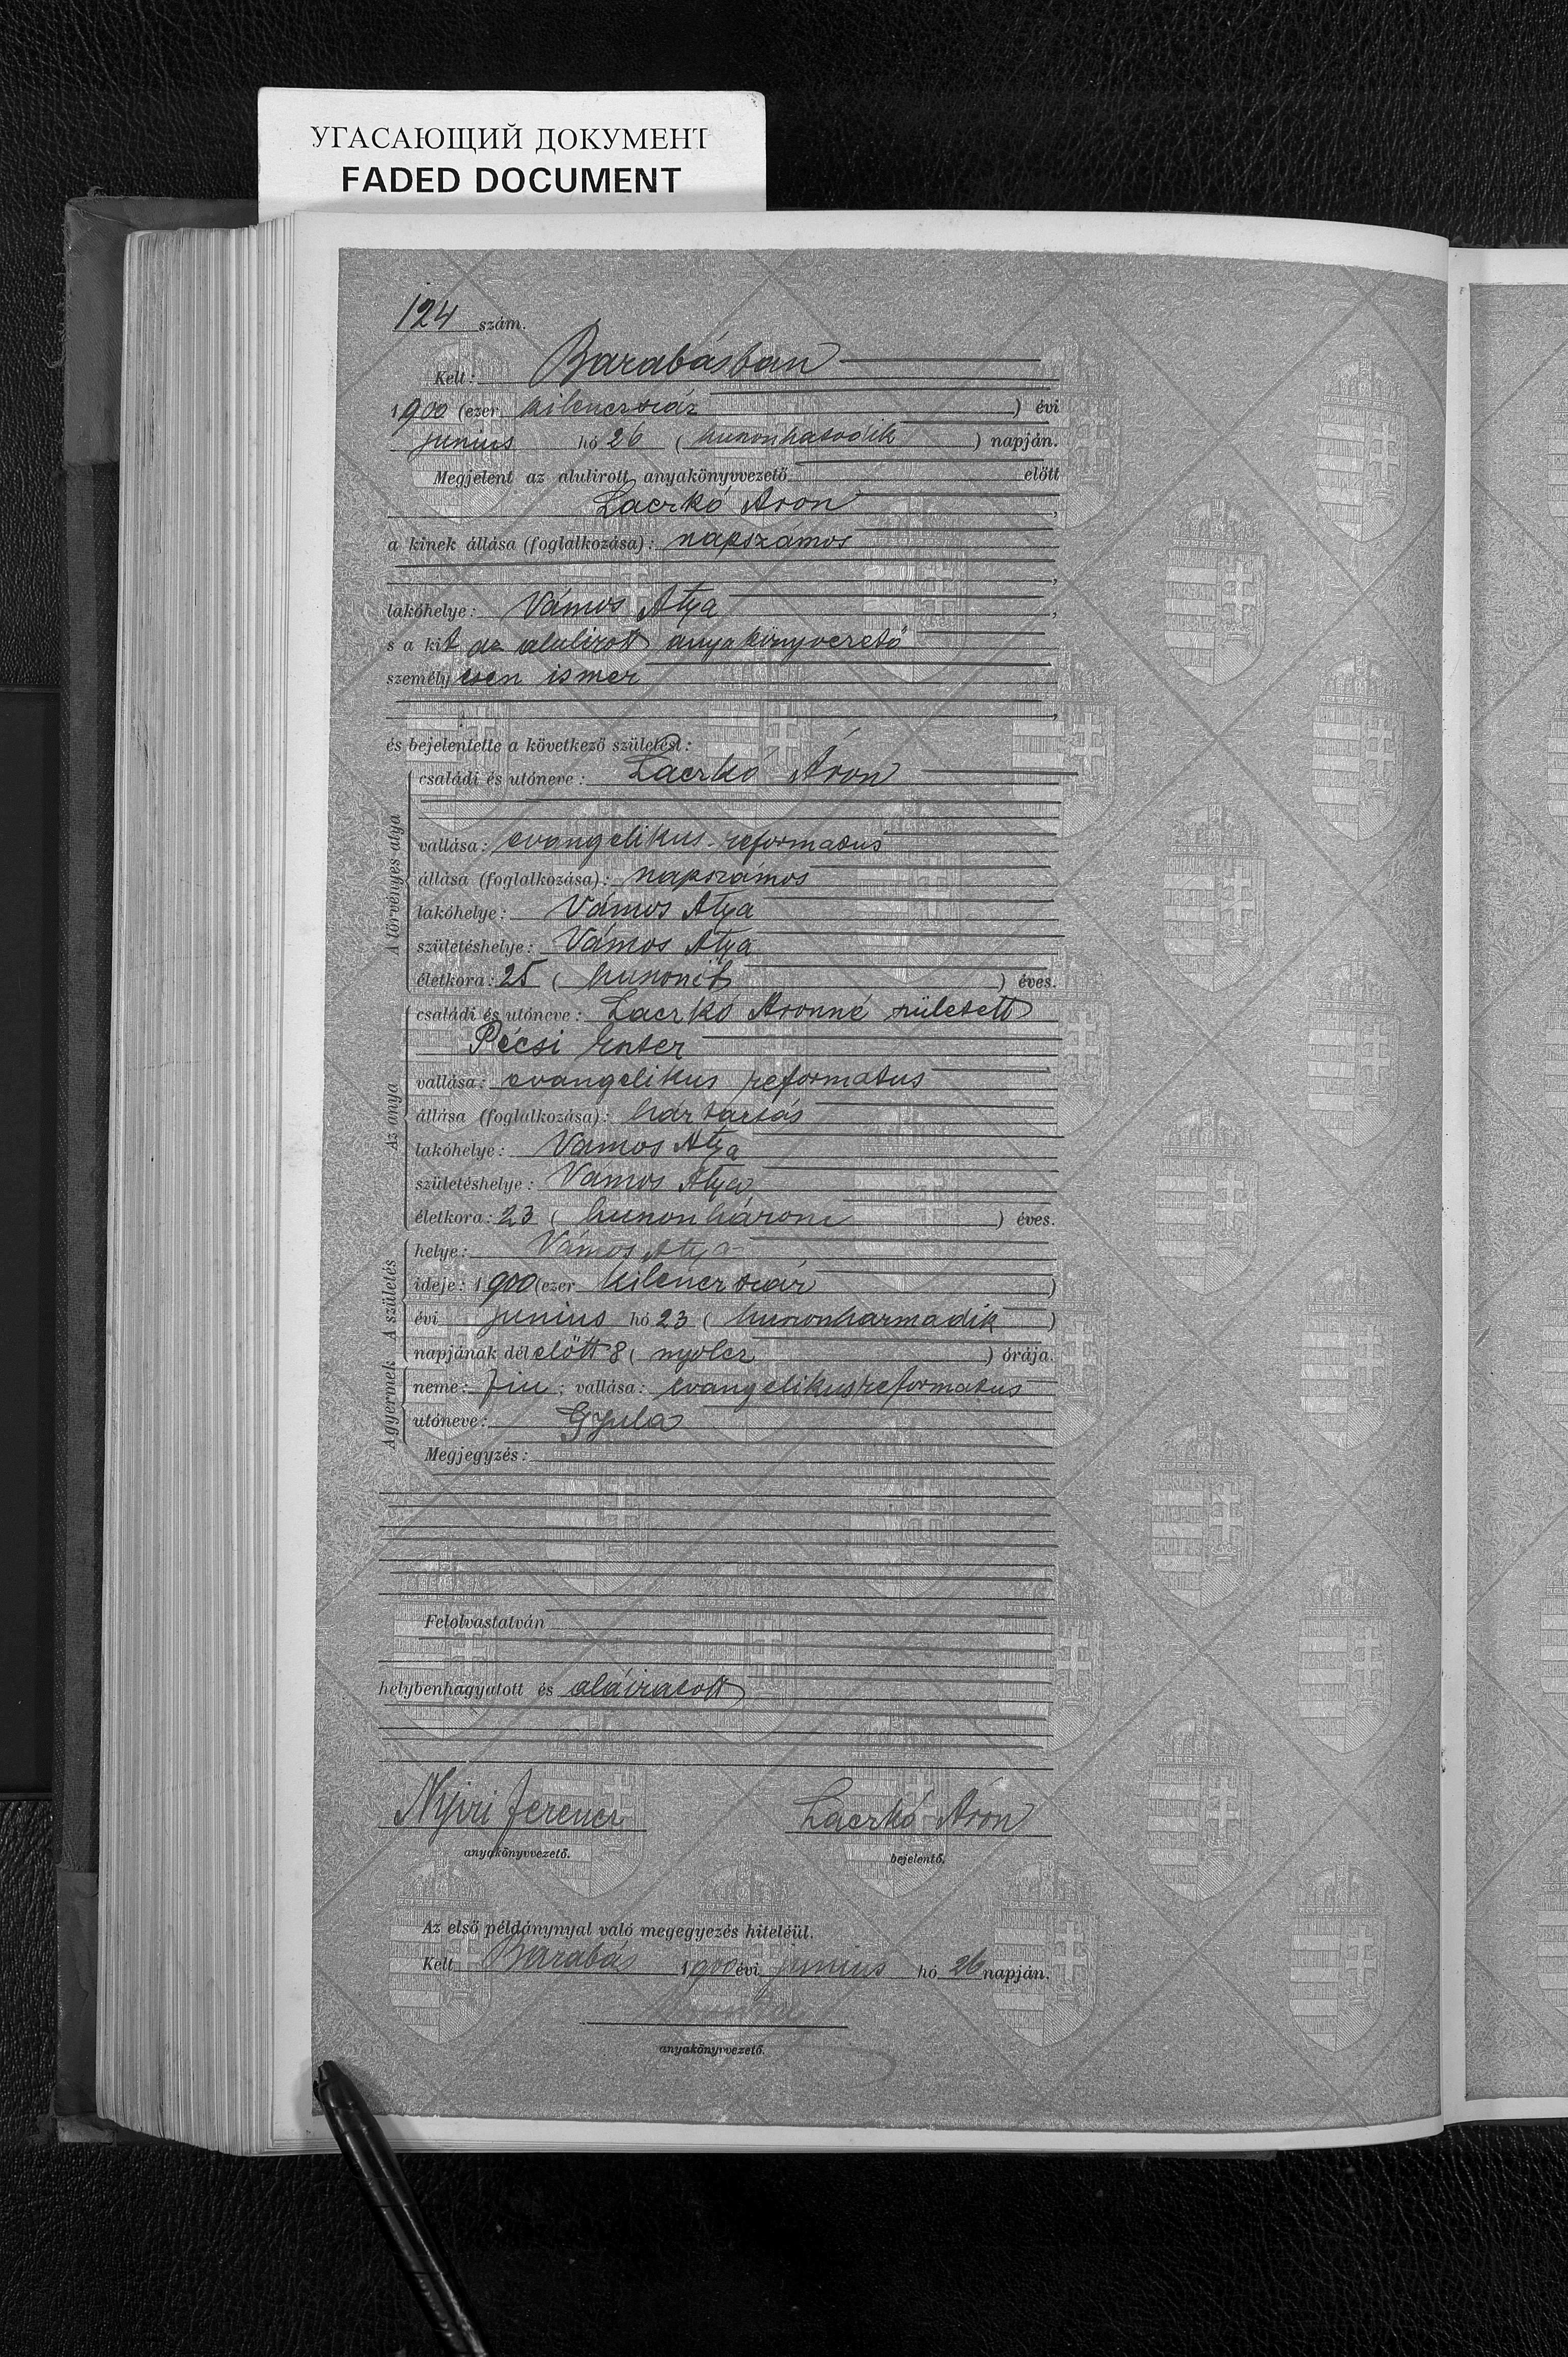 УГАСАЮЩИЙ ДОКУМЕНТ
FADED DOCUMENT
124 szám.
Kelt: Barabásban
1900 (ezer kilenczszáz ) évi
junius hó 26 ( huszonhatodik ) napján.
Megjelent az alulirott anyakönyvvezető előtt
Laczkó Áron ,
a kinek állása (foglalkozása): napszámos
,
lakóhelye: Vámos Atya ,
s a kit az alulirott anyakönyvezető
személyesen ismer
,
és bejelentette a következő születést:
A törvényes atya
családi és utóneve: Laczkó Áron
vallása: evangelikus-reformatus
állása (foglalkozása): napszámos
lakóhelye: Vámos Atya
születéshelye: Vámos Atya
életkora: 25 ( huszonöt ) éves.
Az anya
családi és utóneve: Laczkó Áronné született
Pécsi Eszter
vallása: evangelikus reformatus
állása (foglalkozása): háztartás
lakóhelye: Vámos Atya
születéshelye: Vámos Atya
életkora: 23 ( huszonhárom ) éves.
A születés
helye: Vámos Atya
ideje: 1900 (ezer kilenczszáz )
évi junius hó 23 ( huszonharmadik )
napjának délelőtt 8 ( nyolcz ) órája.
A gyermek
neme: fiu ; vallása: evangelikus reformatus
utóneve: Gyula
Megjegyzés:
Felolvastatván
helybenhagyatott és aláiratott
Nyiri Ferencz Laczkó Áron
anyakönyvvezető. bejelentő.
Az első példánynyal való megegyezés hiteléül.
Kelt Barabás 1900 évi junius hó 26 napján.
anyakönyvvezető.